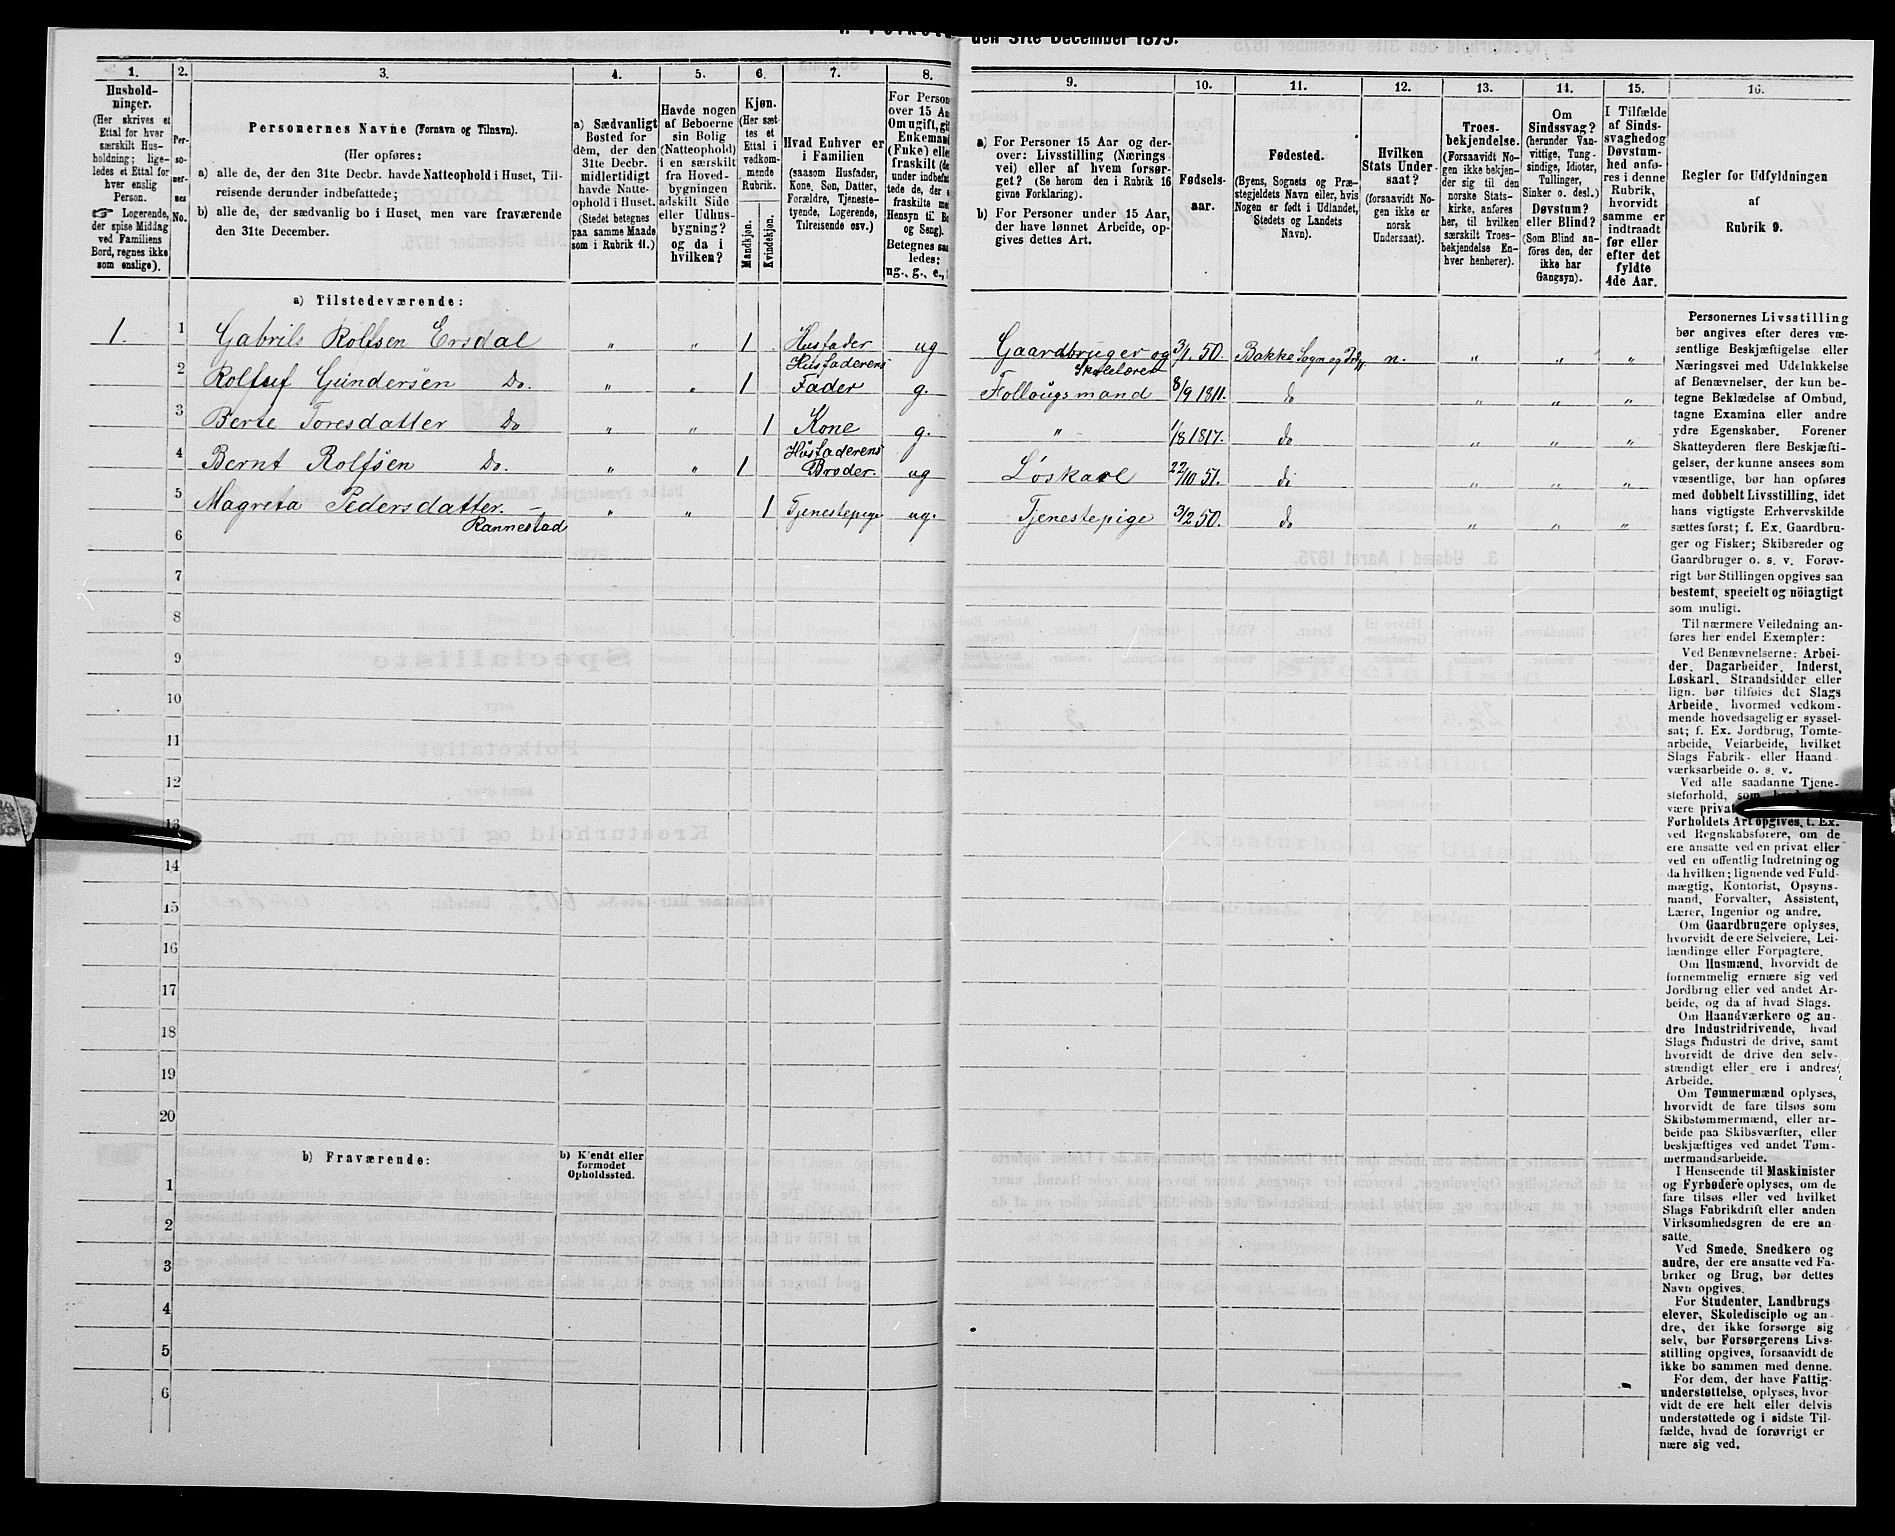 den 31te December 1875.
1.
2.
3.
4.
5.
6.
7.
8.
Hushold-
ninger.
(Her skrives et
Ettal for hver
særskilt Hus-
holdning; lige-
ledes et Ettal for
hver enslig
Person.
☞ Logerende,
der spise Middag
ved Familiens
Bord, regnes ikke
som enslige).
Per-
so-
ner-
nes
No.
Personernes Navne (Fornavn og Tilnavn).
(Her opføres:
a) alle de, der den 31te Decbr. havde Natteophold i Huset, Til-
reisende derunder indbefattede;
b) alle de, der sædvanlig bo i Huset, men vare fraværende
den 31te December.
a) Sædvanligt
Bosted for
dem, der den
31te Decbr.
midlertidigt
havde Natte-
ophold i Huset.
(Stedet betegnes
paa samme Maade
som i Rubrik 11.)
Havde nogen
af Beboerne
sin Bolig
(Natteophold)
i en særskilt
fra Hoved-
bygningen
adskilt Side
eller Udhus-
bygning?
og da i
hvilken?
Kjøn.
(Her sæt-
tes et
Ettal i
vedkom-
mende
Rubrik.
Mandkjøn.
Kvindekjøn.
Hvad Enhver er
i Familien
(saasom Husfader,
Kone, Søn, Datter,
Forældre, Tjeneste-
tyende, Logerende,
Tilreisende osv.)
For Person
over 15 Aa
Om ugift, gif
Enkemand
(Fuke) elle
fraskilt (de
under indbefat
tede de, der e
fraskilte me
Hensyn til Bo
og Seng).
Betegnes saa
ledes:
ug., g., e.,
a) Tilstedeværende:
1. 1 Gabrils Rolfsen Ersdal „ „ 1 Husfader ug
2 Rolluf Gundersen Do. „ „ 1 Husfaderens
Fader g.
3 Berte Toresdatter Do „ „ 1 Kone g.
4 Bernt Rolfsen Do. „ „ 1 Husfaderens
Broder. ug
5 Magreta Pedersdatter. „ „ 1 Tjenestepige ug.
Rannestad
6
7
8
9
10
11
12
13
14
15
16
17
18
19
20
b) Fraværende:
b) Kjendt eller
formodet
Opholdssted.
1
2
3
4
5
6
9.
10.
11.
12.
13.
14.
15.
16.
a) For Personer 15 Aar og der-
over: Livsstilling (Nærings
vei) eller af hvem forsør-
get? (Se herom den i Rubrik 16
givne Forklaring).
b) For Personer under 15 Aar,
der have lønnet Arbeide, op-
gives dettes Art.
Fødsels-
aar.
Fødested.
(Byens, Sognets og Præ-
stegjeldets Navn eller, hvis
Nogen er født i Udlandet,
Stedets og Landets
Navn).
Hvilken
Stats Under-
saat?
(forsaavidt No-
gen ikke er
norsk
Undersaat).
Troes-
bekjendelse.
(Forsaavidt No-
gen ikke bekjen-
der sig til den
norske Stats-
kirke, anføres
her, til hvilken
særskilt Troes-
bekjendelse En-
hver henhører).
Om
Sindssvag?
(herunder Van-
vittige, Tung-
sindige, Idioter,
Tullinger,
Sinker o. desl.)
Døvstum?
eller Blind?
(Som Blind an-
føres den, der
ikke har
Gangsyn).
I Tilfælde
af Sinds-
svaghedog
Døvstum-
hed anfø-
res i denne
Rubrik,
hvorvidt
samme er
indtraadt
før eller
efter det
fyldte
4de Aar.
Regler for Udfyldningen
af
Rubrik 9.
Gaardbruger og 3/1 50. Bakke Sogn og n. „ „ „
Skolelærer
Follaugsmand 8/9 1811. do „ „ „
„ 1/8 1817. do „ „ „
Løskarl 22/10 51. do „ „ „
Tjenestepige 3/2 50. do „ „ „
Personernes Livsstilling
bør angives efter deres væ-
sentlige Beskjæftigelse eller
Næringsvei med Udelukkelse
af Benævnelser, der kun be-
tegne Beklædelse af Ombud,
tagne Examina eller andre
ydre Egenskaber. Forener
Skatteyderen flere Beskjæfti-
gelser, der kunne ansees som
væsentlige, bør han opføres
med dobbelt Livsstilling, idet
hans vigtigste Erhvervskilde
sættes først; f. Ex. Gaardbru-
ger og Fisker; Skibsreder og
Gaardbruger o. s. v. Forøv-
rigt bør Stillingen opgives saa
bestemt, specielt og nöiagtigt
som muligt.
Til nærmere Veiledning an-
føres her endel Exempler:
Ved Benævnelserne: Arbei-
der, Dagarbeider, Inderst,
Løskarl, Strandsidder eller
lign. bør tilføies det Slags
Arbeide, hvormed vedkom-
mende hovedsagelig er syssel-
sat; f. Ex. Jordbrug, Tomte-
arbeide, Veiarbeide, hvilket
Slags Fabrik- eller Haand
værksarbeide o. s. v.
Ved alle saadanne Tjene-
steforhold, som
være privat
Forholdets Art opgives, t. Ex.
ved Regnskabsførere, om de
ere ansatte ved en privat eller
ved en offentlig Indretning og
da hvilken; lignende ved Fuld-
mægtig, Kontorist, Opsyns-
mand, Forvalter, Assistent,
Lærer, Ingeniør og andre.
Om Gaardbrugere oplyses,
hvorvidt de ere Selveiere, Lei-
lændinge eller Forpagtere.
Om Husmænd, hvorvidt de
fornemmelig ernære sig ved
Jordbrug eller ved andet Ar-
beide, og da af hvad Slags.
Om Haandværkere og an-
dre Industridrivende, hvad
Slags Industri de drive, samt
hvorvidt de drive den selv-
stændigt eller ere i andres
Arbeide.
Om Tømmermænd oplyses,
hvorvidt de fare tilsøs som
Skibstømmermænd, eller ar-
beide paa Skibsværfter, eller
beskjæftiges ved andet Tøm-
mermandsarbeide.
I Henseende til Maskinister
og Fyrbødere oplyses, om de
fare tilsøs eller ved hvilket
Slags Fabrikdrift eller anden
Virksomhedsgren de ere an-
satte.
Ved Smede, Snedkere og
andre, der ere ansatte ved Fa-
briker og Brug, bør dettes
Navn opgives.
For Studenter, Landbrugs
elever, Skoledisciple og an-
dre, der ikke forsørge sig
selv, bør Forsørgerens Livs-
stilling opgives, forsaavidt de
ikke bo sammen med denne.
For dem, der have Fattig-
understøttelse, oplyses, hvor-
vidt de ere helt eller delvis
understøttede og i sidste Til-
fælde, hvad de forøvrigt er
nære sig ved.